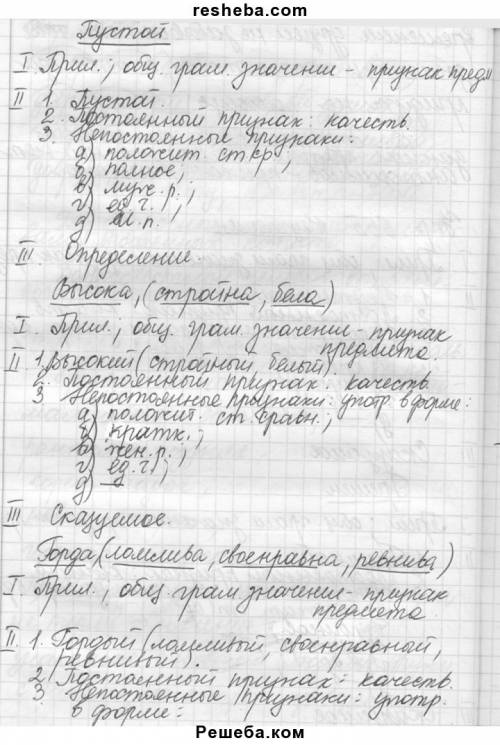 resheba.com
Пустой
I Прил.; общ. грам. значении - признак предм
II 1. Пустой.
2. Постоянный признак: качеств.
3. Непостоянные признаки:
а) положит. ст. ср.;
б) полное;
в) муж. р.;
г) ед. ч.;
д) и. п.
III. Определение.
Высока, (стройна, бела)
I. Прил.; общ. грам. значении - признак
предмета.
II 1. Высокий (стройный, белый).
2. Постоянный признак: качеств.
3 Непостоянные признаки: употр. в форме:
а) положит. ст. сравн.;
б) кратк.;
в) жен. р.;
г) ед. ч.;
д) —
III Сказуемое.
Горда, (ломлива, своенравна, ревнива)
I. Прил.; общ. грам. значении - признак
предмета.
II. 1. Гордый (ломливый, своенравный,
ревнивый).
2. Постоянный признак: качеств.
3. Непостоянные признаки: употр.
в форме:
Решеба.ком